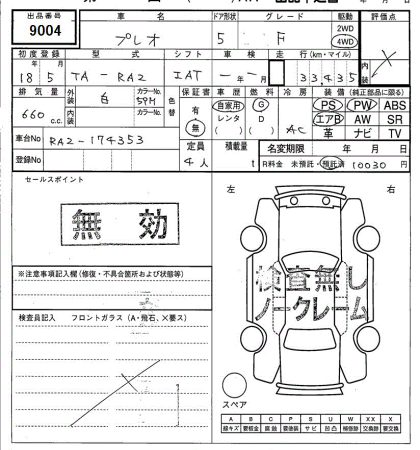 出品番号 車名 ドア形状 グレード 駆動 評価点
9004 プレオ 5 F 2WD 4WD
初度登録 型式 シフト 車検 走行(km・マイル) 内装
年 月
18 5 TA-RA2 IAT - 年 - 月 33,435
排気量 外装 白 カラーNo. 59M 色替 保証書 車歴 燃料 冷房 装備(純正部品に限る)
660 c.c. 内装 カラーNo. 有 無 自家用 レンタ G D AC PS PW ABS
エアB AW SR
革 ナビ TV
車台No RA2-174353 定員 積載量 名変期限 年 月 日
登録No 4人 t R料金 未預託・預託済 10030円
セールスポイント
無効
左 右
※注意事項記入欄(修復・不具合箇所および状態等)
検査無し
ノークレーム
検査員記入 フロントガラス(A・飛石、X要ス)
スペア
A B C P S U W XX X
線キズ 要板金 腐蝕 要塗装 サビ 凹凸 補修跡 交換跡 要交換